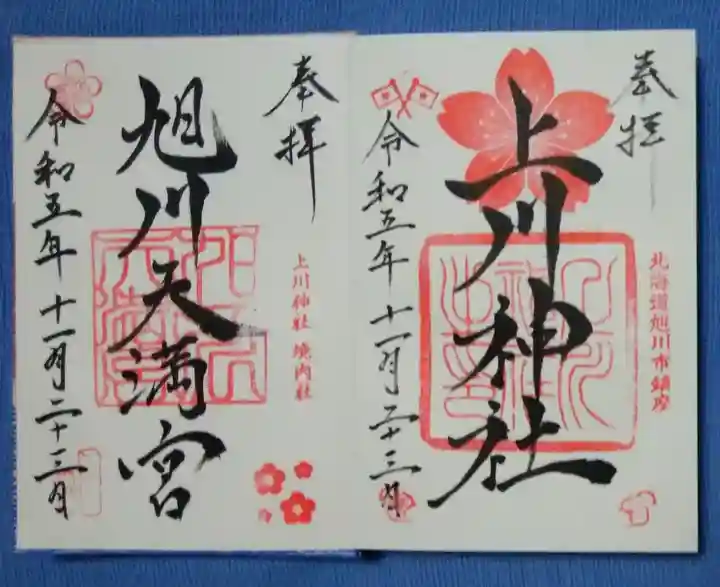 奉拝
上川神社
北海道旭川市鎮座
令和五年十一月二十三日
奉拝
上川神社 境内社
旭川天満宮
令和五年十一月二十三日